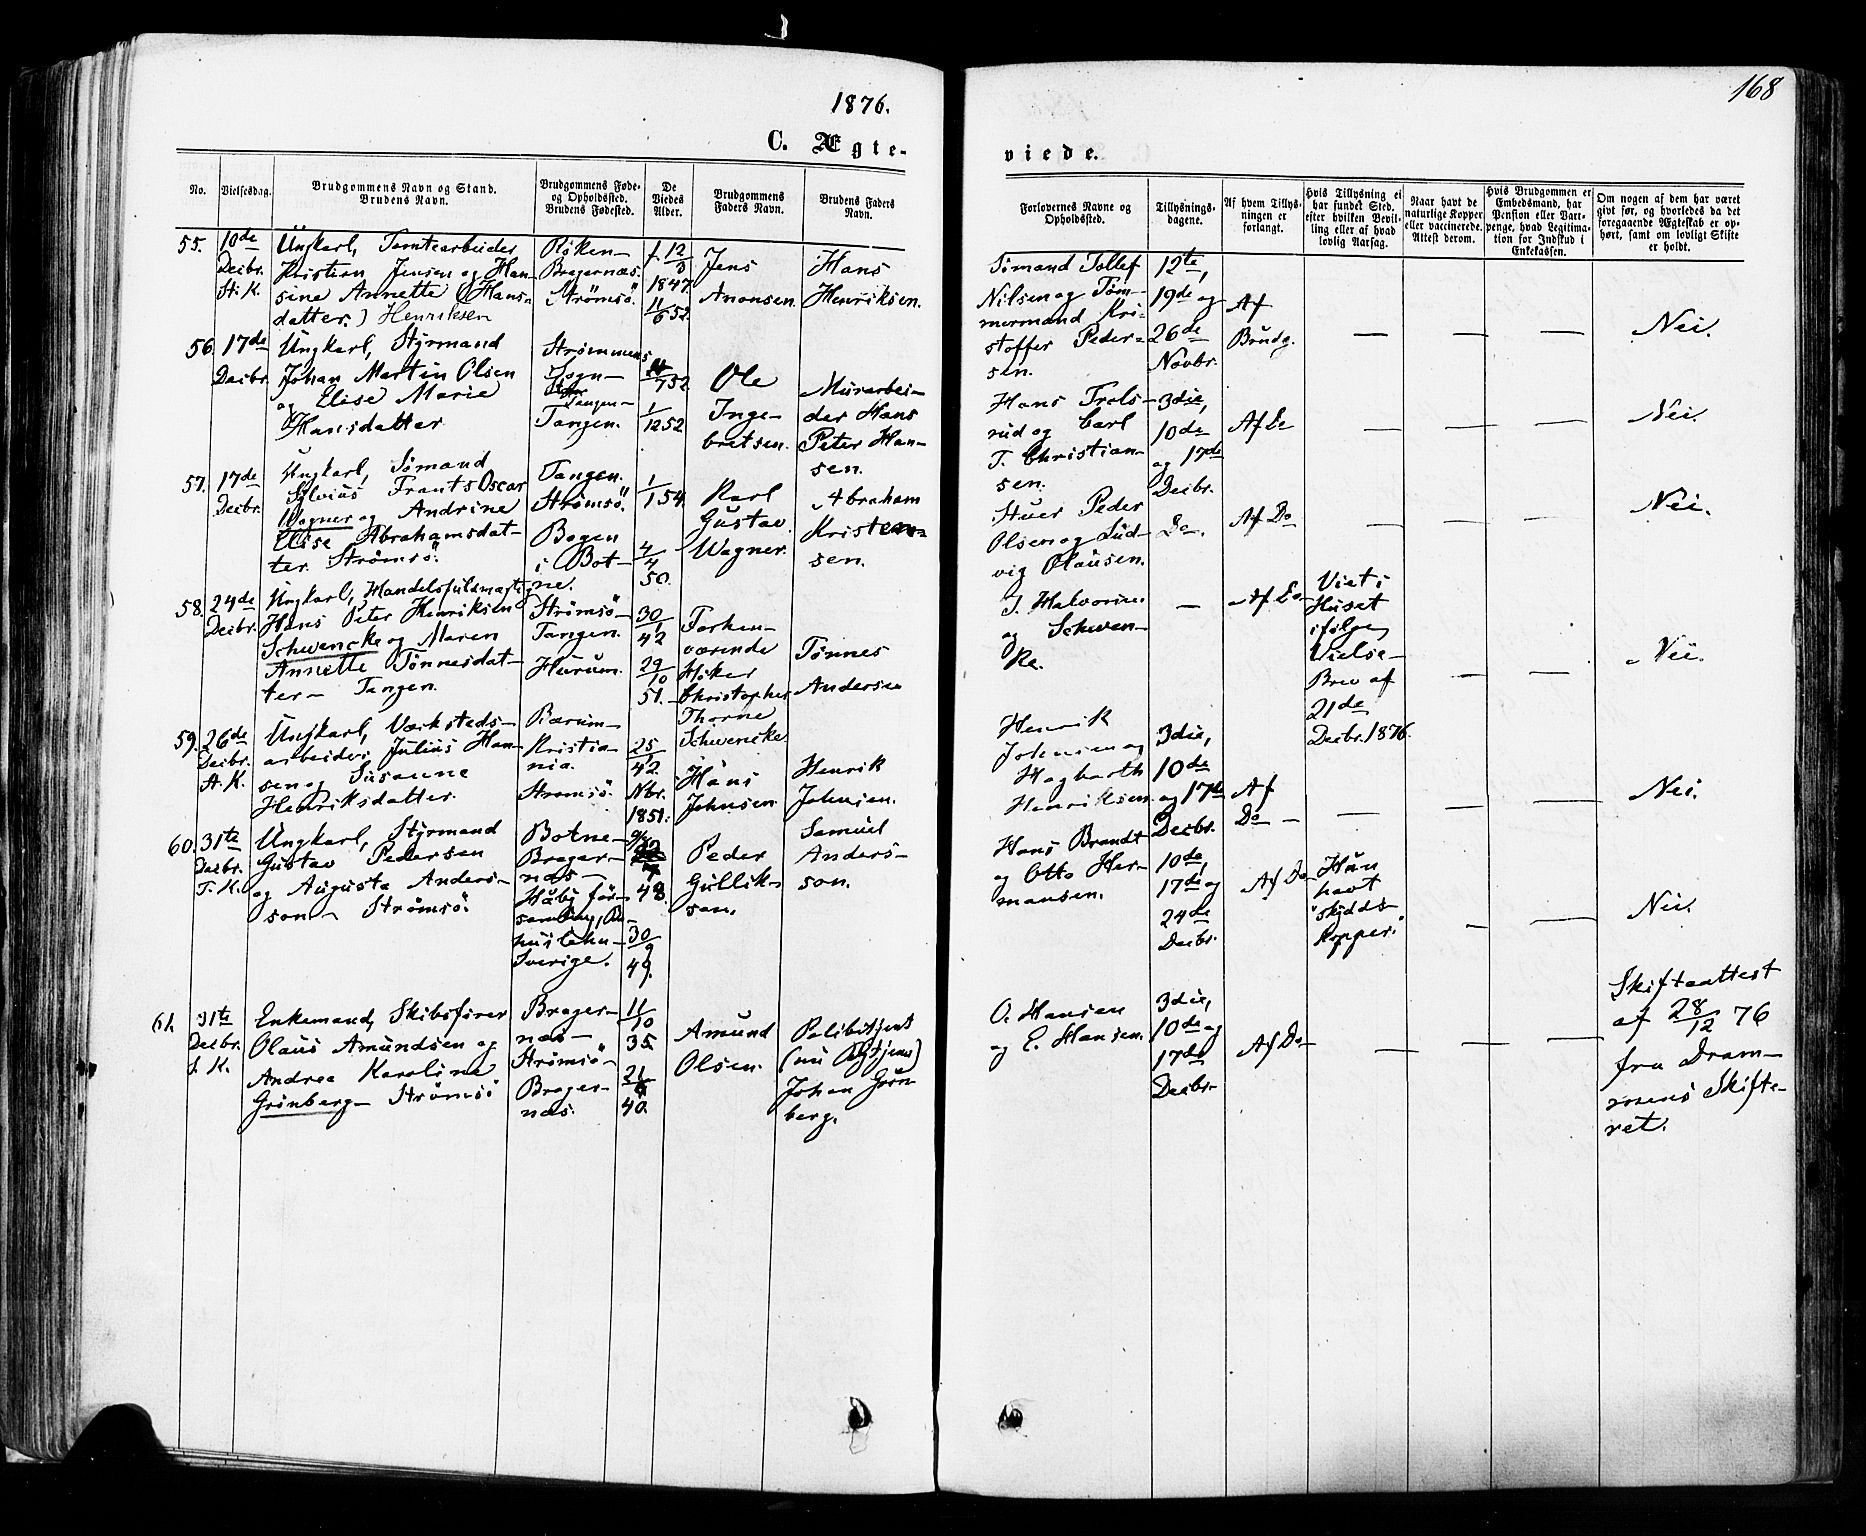 1876.
168
C. Ægte-
viede.
No.
Vielsesdag.
Brudgommens Navn og Stand.
Brudens Navn.
Brudgommens Føde-
og Opholdssted.
Brudens Fødested.
De
Viedes
Alder.
Brudgommens
Faders Navn.
Brudens Faders
Navn.
Forlovernes Navne og
Opholdssted.
Tillysnings-
dagene.
Af hvem Tillys-
ningen er
forlangt.
Hvis Tillysning ei
har fundet Sted,
efter hvilken Bevil-
ling eller af hvad
lovlig Aarsag.
Naar havt de
naturlige Kopper
eller vaccinerede.
Attest derom.
Hvis Brudgommen er
Embedsmand, har
Pension eller Vart-
penge, hvad Legitima-
tion for Indskud i
Enkekassen.
Om nogen af dem har været
givt før, og hvorledes da det
foregaaende Ægteskab er op-
hørt, samt om lovligt Skifte
er holdt.
55.
10de
Decbr.
St. K.
Ungkarl, Tomtearbeider
Kristian Jensen og Han-
sine Annette (Hans-
datter.) Henriksen
Røken-
Bragernæs.
Strømsö.
12/3
1847
11/6 52.
Jens
Anonsen.
Hans
Henriksen.
Sömand Tollef
Nilsen og Töm-
mermand Kri-
stoffer Peder-
sen.
12te,
19de og
26de
Novbr.
Af
Brudg.
—
—
—
Nei.
56.
17de
Decbr.
Ungkarl, Styrmand
Johan Martin Olsen
og Elise Marie
Hansdatter
Strømmens
Sogn-
Tangen-
Tangen.
/7 52
1/12 52
Ole
Inge-
bretsen.
Murarbei-
der Hans
Peter Han-
sen.
Hans Trols-
rud og Carl
T. Christian-
sen.
3die,
10de
og 17de
Decbr.
Af Do
—
—
—
Nei.
57.
17de
Decbr.
Ungkarl, Sømand
Sylvius Frants Oscar
Wagner og Andrine
Elise Abrahamsdat-
ter. Strømsö.
Tangen.
Strømsö.
Bogen
i Bot-
ne.
1/1 54.
4/4
50.
Karl
Gustav
Wagner.
Abraham
Kristen-
sen.
Stuer Peder
Olsen og Lud-
vig Olausen.
Do.
Af Do
—
—
—
Nei.
58.
24de
Decbr.
Ungkarl, Handelsfuldmægtig
Hans Peter Henriksen
Schwencke og Maren
Annette Tönnesdat-
ter — Tangen.
Strømsö-
Tangen.
Hurum.
30/1
42
29/10
51.
Forhen-
værende
Høker
Christopher
Thorne
Schwencke
Tönnes
Andersen
J. Halvorsen
og Schwen-
ke.
—
Af Do
Viet i
Huset
ifölge
Vielse-
Brev af
21de
Decbr. 1876.
—
—
Nei.
59.
26de
Decbr.
St. K.
Ungkarl, Værksteds-
arbeider Julius Han-
sen og Susanne
Henriksdatter.
Bærum-
Kristia-
nia.
Stromsö.
25/1
42.
Nbr.
1851.
Hans
Johnsen
Henrik
Johnsen.
Henrik
Johnsen og
Hagbarth
Henriksen.
3die,
10de
og 17de
Decbr.
Af
Do —
—
—
—
Nei.
60.
31te
Decbr.
T. K.
Ungkarl, Styrmand
Gustav Pedersen
og Augusta Anders-
son — Strømsö.
Botne-
Brager-
næs-
Håby för-
samling, Bo-
huslehn-
Sverige.
48.
30/9
49.
Peder
Gullik-
sen.
Samuel
Anders-
son.
Hans Brandt
og Otto Her-
mansen.
10de,
17de og
24de
Decbr.
Af Do
— Hun
havt
"skydds-
kopper."
—
—
Nei.
61.
31te
Decbr.
S. K.
Enkemand, Skibsförer
Olaus Amundsen og
Andrea Karoline
Grönberg — Strømsö
Brager-
næs-
Strømsö-
Brager-
næs.
11/10
35.
40.
Amund
Olsen.
Politbetjent
Johan Grön-
berg.
O. Hansen
og E. Hansen.
3die,
10de og
17de
Decbr.
Af Do
—
—
—
Skifteattest
af 28/12 76
fra Dram-
mens Skifte-
ret.